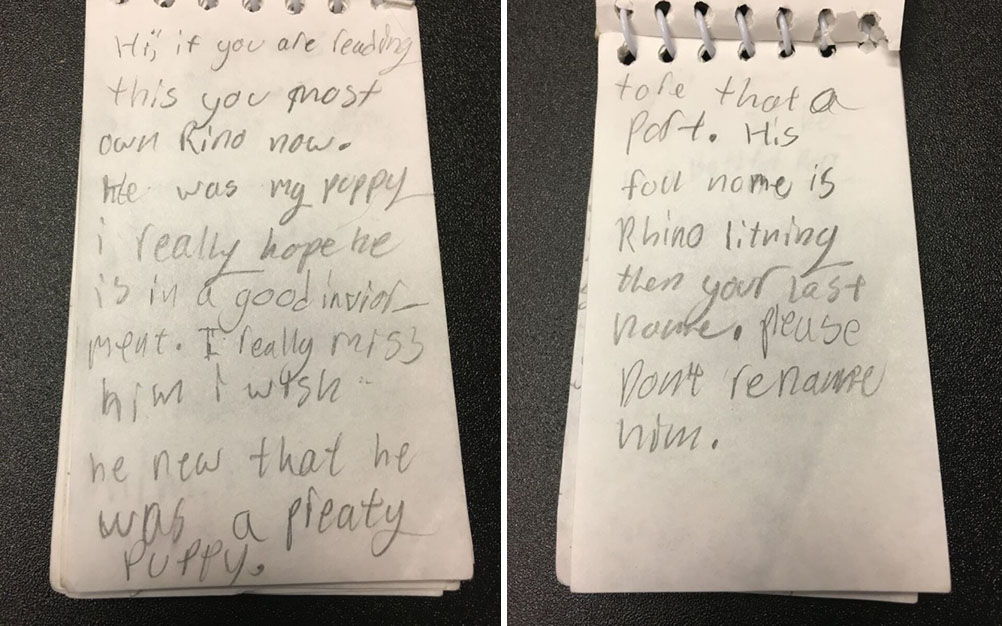 Hi, if you are reading
this you most
own Rino now.
He was my puppy
i really hope he
is in a good invior-
ment. I really miss
him i wish
he new that he
was a preaty
puppy.
tore that a
part. His
full name is
Rhino litning
then your last
name. please
Dont rename
him.